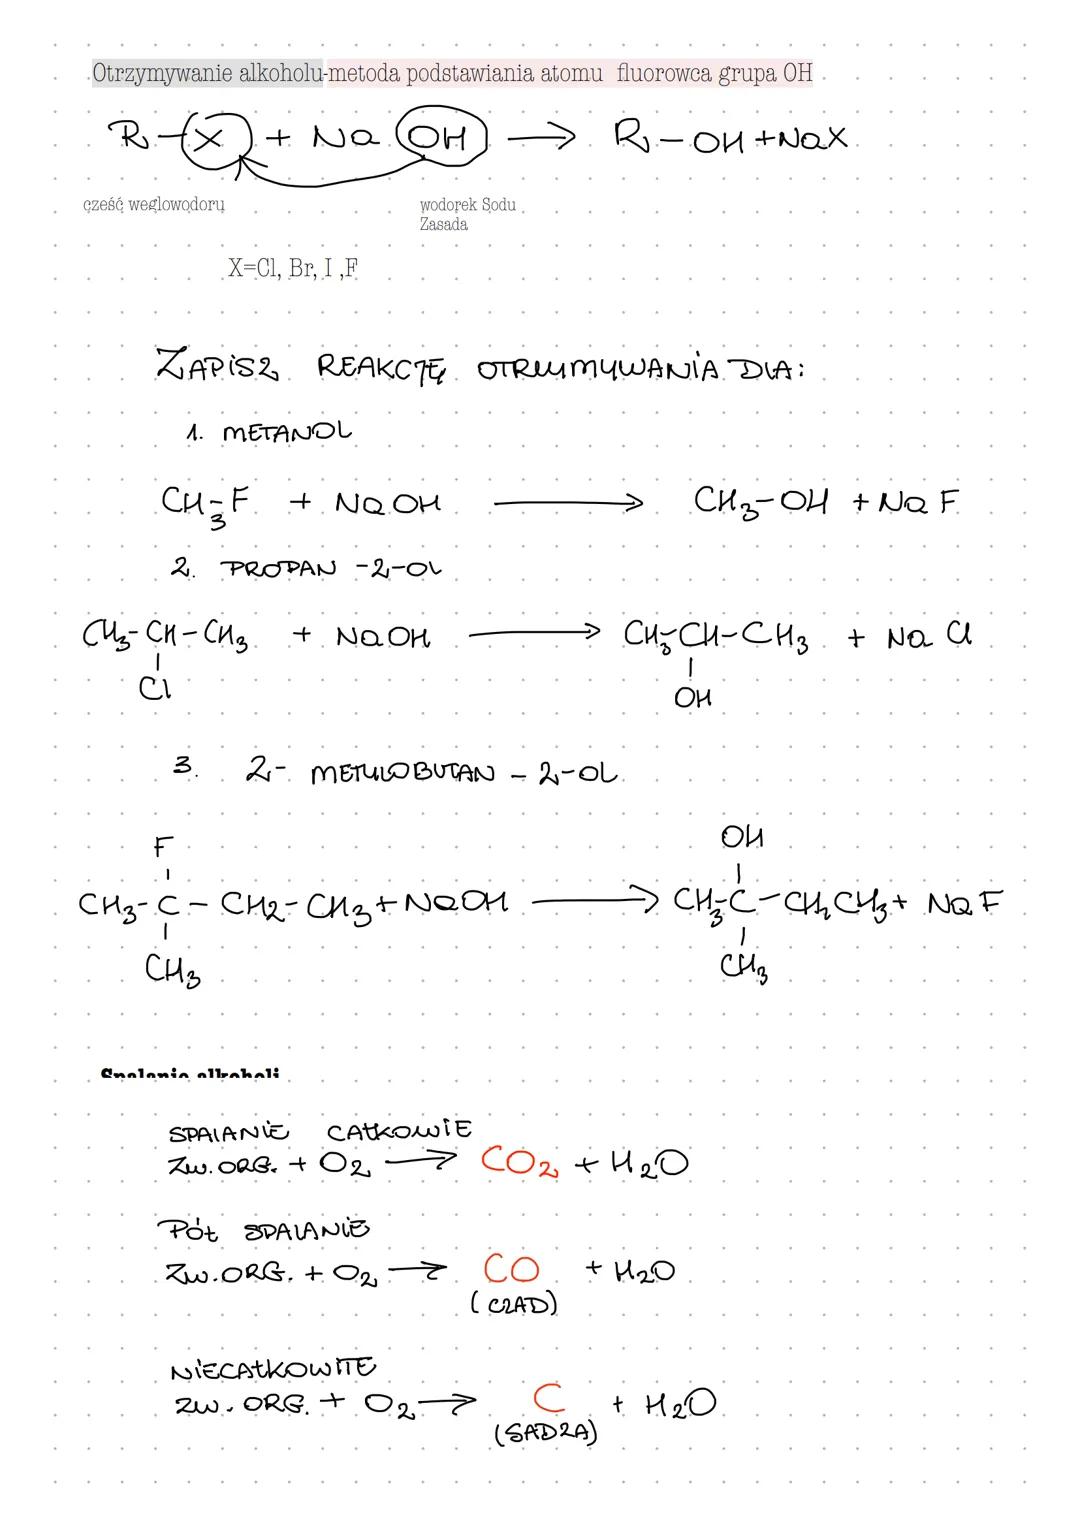 Otrzymywanie alkoholu-metoda podstawiania atomu fluorowca grupa OH
R-X + NaOH → R-OH + NaX
cześć weglowodoru
wodorek Sodu
Zasada
X=Cl, Br, I ,F
ZAPISZ REAKCJĘ OTRZYMYWANIA DLA:
1. METANOL
CH3-F + NaOH → CH3-OH + NaF
2. PROPAN-2-OL
CH3-CH-CH3 + NaOH → CH3-CH-CH3 + NaCl
Cl OH
3. 2-METYLOBUTAN-2-OL
F OH
CH3-C-CH2-CH3 + NaOH → CH3-C-CH2CH3 + NaF
CH3 CH3
Spalanie alkoholi
SPALANIE CAŁKOWIE
ZW. ORG. + O2 → CO2 + H2O
PÓŁ SPALANIE
ZW. ORG. + O2 → CO + H2O
(CZAD)
NIECAŁKOWITE
ZW. ORG. + O2 → C + H2O
(SADZA)